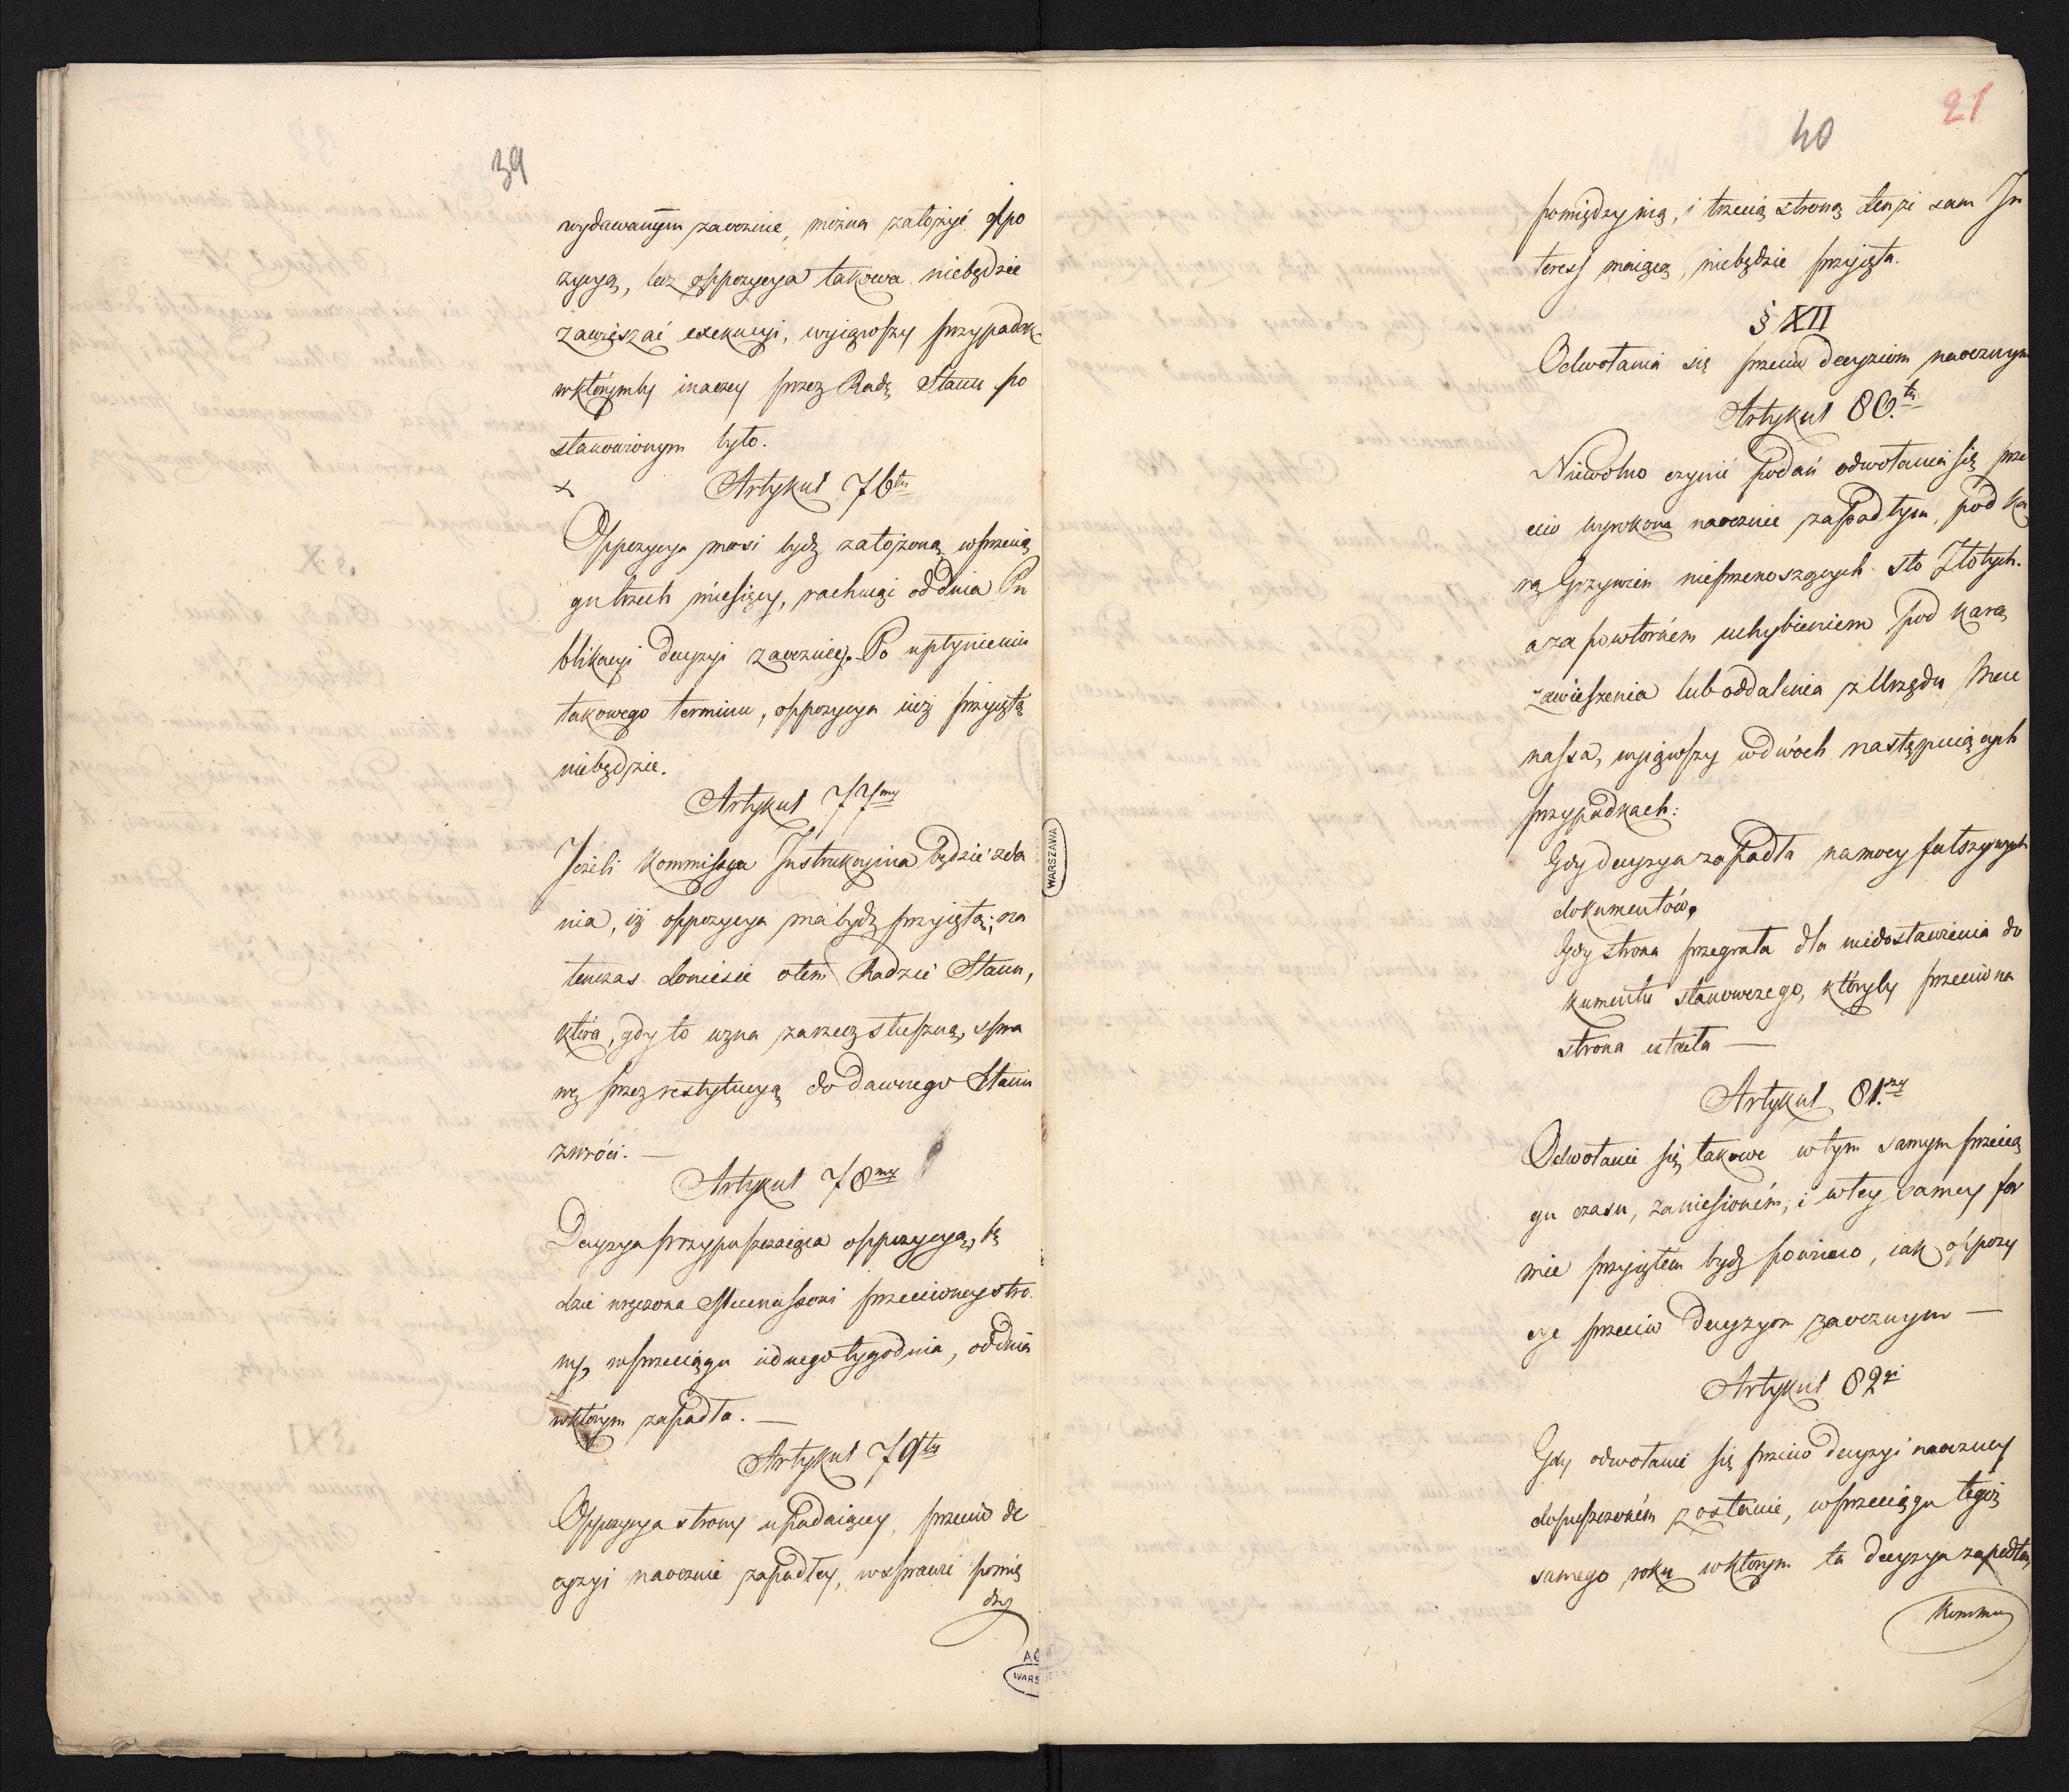 39
wydawanym zaocznie, można założyć oppo
zycyą, lecz oppozycya takowa niebędzie
zawieszać exekucyi, wyiąwszy przypadek
wktórymby inaczey przez Radę Stanu po
stanowionym było.
x Artykuł 76ty
Oppozycya musi bydź założoną wprzecią
gu trzech miesięcy, rachuiąc oddnia Pu
blikacyi decyzyi zaoczney. Po upłynieniu
takowego terminu, oppozycya iuż przyiętą
niebędzie.
Artykuł 77my
Jeżeli Kommissya Instrukcyina będzie zda
nia, iż oppozycya má bydź przyiętą; na
tenczas doniesie otem Radzie Stanu,
która, gdy to uzna zarzecz słuszną, spra
wę przez restytucyą do dawnego Stanu
zwróci. —
Artykuł 78my
Decyzya przypuszczaiąca oppozycyą, bę
dzie wręczona Mecenassowi przeciwney stro
ny, wprzeciągu iednego tygodnia, oddnia
wktórym zapadła. —
Artykuł 79ty
Oppozycya strony upadaiącey, przeciw de
cyzyi naocznie zapadłey, wsprawie pomię
dzy
AG
WARS
WARSZAWA
21
40
pomiędzy nią, i trzecią stroną tenże sam In
teress maiącą, niebędzie przyięta.
§ XII
Odwołania się przeciw decyziom naocznym
Artykuł 80.ty
Niewolno czynić podań odwołania się prze
ciw wyrokom naocznie zapadłym, pod ka
rą Grzywien nieprzenoszących sto Złotych.
a za powtórném uchybieniem pod karą
zawieszenia lub oddalenia z Urzędu Mece
nassa, wyiąwszy w dwóch następuiących
przypadkach:
Gdy decyzya zapadła namocy fałszywych
dokumentów,
Gdy strona przegrała dla niedostawienia do
kumentu stanowczego, któryby przeciwna
strona utaiła —
Artykuł 81.szy
Odwołanie się takowe wtym samym przecią
gu czasu, zaniesioném, i wtey samey for
mie przyiętem bydź powinno, iak oppozy
cye przeciw decyzyom zaocznym —
Artykuł 82gi
Gdy odwołanie się przeciw decyzyi naoczney
dopuszczoném zostanie, wprzeciągu tegoż
samego roku wktórym ta decyzya zapadła,
Kommis